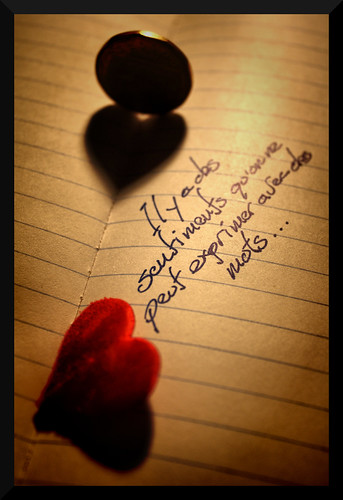 Il y a des
sentiments qu'on ne
peut exprimer avec des
mots...